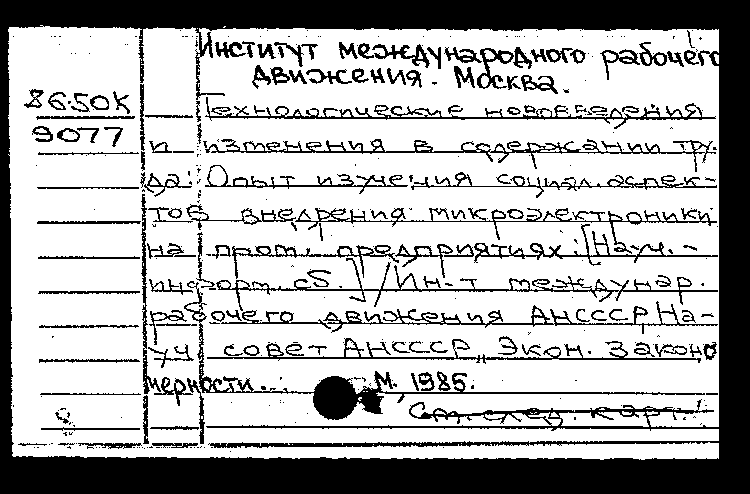 Институт международного рабочего
движения. Москва.
86.50К
9077
Технологические нововведения
и изменения в содержании тру-
да: Опыт изучения социал. аспек-
тов внедрения микроэлектроники
на пром. предприятиях: [Науч.-
информ. сб.] / Ин-т междунар.
рабочего движения АНСССР, На-
уч совет АНСССР „Экон. законо
мерности...
М., 1985.
См. след. карт.!